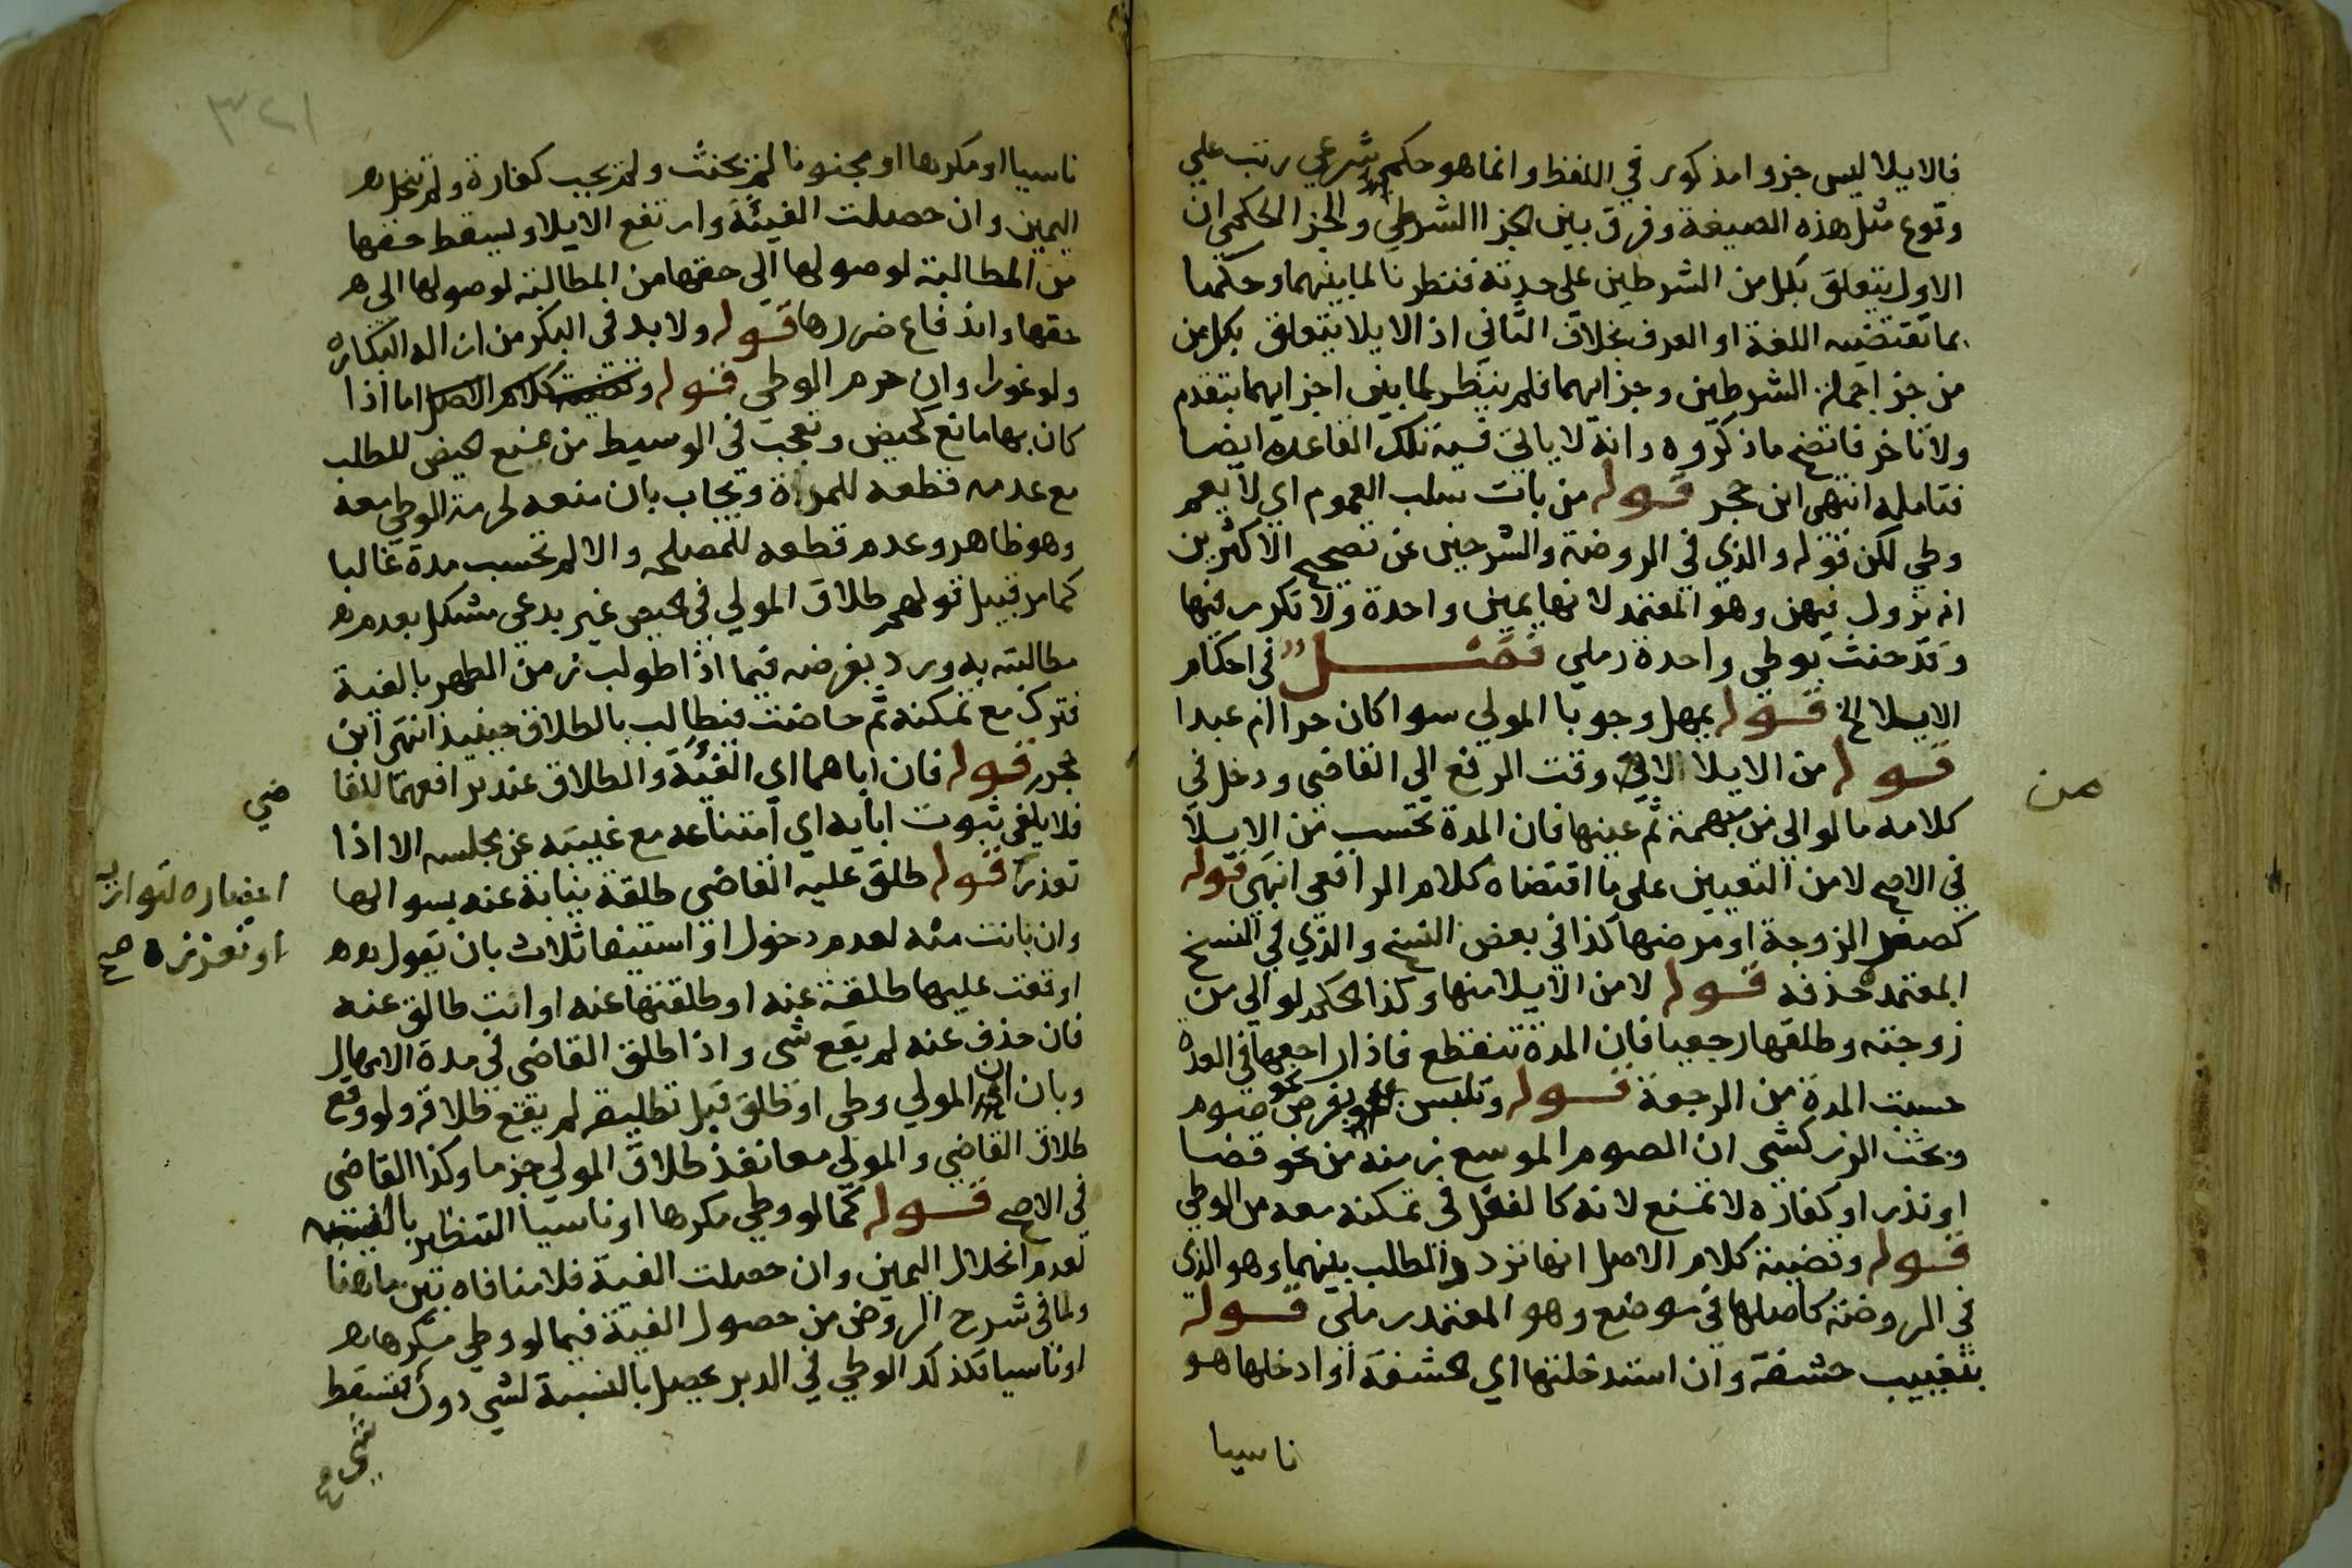 فالايلا ليس جزوا مذكور في اللفظ وانما هو حكم شرعي رتب علي
وقوع مثل هذه الصيغة وفرق بين الجزا الشرطي والجزا الحكمي ان
الاول يتعلق بكل من الشرطين على حدته فنظرنا لما بينهما وحكمنا
بما تقتضيه اللغة او العرف بخلاف الثاني اذ الايلا يتعلق بكل من
من جز اجملة الشرطين وجزايهما فلم ينظر لما بين اجزايهما بتقدم
ولا تاخر فاتضح ماذكروه وانه لا ياتي فيه تلك القاعدة ايضا
فتامله انتهى ابن حجر قوله من باب سلب العموم اي لا يعم
وطي لكن قوله والذي في الروضة والشرحين عن تصحيح الاكثرين
انه يزول فيهن وهو المعتمد لانها يمين واحدة ولا تكرر فيها
وقد حنث بوطي واحدة رملي فصل في احكام
الايلا الخ قوله يمهل وجوبا المولي سوا كان حرا ام عبدا
قوله من الايلا الاتي وقت الرفع الي القاضي ودخل في
كلامه مالو الى من مبهمة ثم عينها فان المدة تحسب من الايلا
في الاصح لا من التعيين على ما اقتضاه كلام الرافعي انتهى قوله
كصغر الزوجة او مرضها كذا في بعض النسخ والذي في النسخ
المعتمدة حذفه قوله لا من الايلا منها وكذا الحكم لو الى من
زوجته وطلقها رجعيا فان المدة تنقطع فاذا راجعها في العدة
حسبت المدة من الرجعة قوله وتلبس بفرض نحو صوم
وبحث الزركشي ان الصوم الموسع زمنه من نحو قضا
او نذر او كفارة لا تمنع لانه كالفعل في تمكنه معه من الوطي
قوله وقضية كلام الاصل انها تردد الطلب بينهما وهو الذي
في الروضة كاصلها في موضع وهو المعتمد رملي قوله
بتغييب حشفة وان استدخلتها اي الحشفة او ادخلها هو
ناسيا
من
٣٢١
ناسيا او مكرها او مجنونا لم يحنث ولم تجب كفارة ولم تنحل
اليمين وان حصلت الفيئة وارتفع الايلا ويسقط حقها
من المطالبة لوصولها الي حقها من المطالبة لوصولها الى
حقها واندفاع ضررها قوله ولا بد في البكر من ازالة البكارة
ولو غورا وان حرم الوطي قوله وقضية كلام الاصل اما اذا
كان بها مانع كحيض وتعجب في الوسيط من منع الحيض للطلب
مع عدمه قطعه للمدة ويجاب بان منعه لحرمة الوطي معه
وهو ظاهر وعدم قطعه للمصلحة والا لم تحسب مدة غالبا
كما مر قبيل قولهم طلاق المولي في الحيض غير بدعي مشكل بعدم
مطالبته به ورد بفرضه فيما اذا طولب زمن الطهر بالفية
فترك مع تمكنه ثم حاضت فتطالب بالطلاق حينيذ انتهى ابن
حجر قوله فان اباهما اي الفيئة والطلاق عند ترافعهما للقا
ضي
فلا يكفي ثبوت ابايه اي امتناعه مع غيبته عن مجلسه الا اذا
تعذر قوله طلق عليه القاضي طلقة نيابة عنه بسوالها
احضاره لتواريه
او تعززه صح
وان بانت منه لعدم دخول او استيفا ثلاث بان يقول
اوقعت عليها طلقة عنه او طلقتها عنه او انت طالق عنه
فان حذف عنه لم يقع شي واذا طلق القاضي في مدة الامهال
وبان ان المولي وطي او طلق قبل تطليقه لم يقع طلاقه ولو وقع
طلاق القاضي والمولي معا نفذ طلاق المولي جزما وكذا القاضي
في الاصح قوله كما لو وطي مكرها او ناسيا التنظير بالنسبة
لعدم انحلال اليمين وان حصلت الفية فلا منافاة بين ما هنا
ولما في شرح الروض من حصول الفية فيما لو وطي مكرها
او ناسيا فكذلك الوطي في الدبر يحصل بالنسبة لشي دون
شي